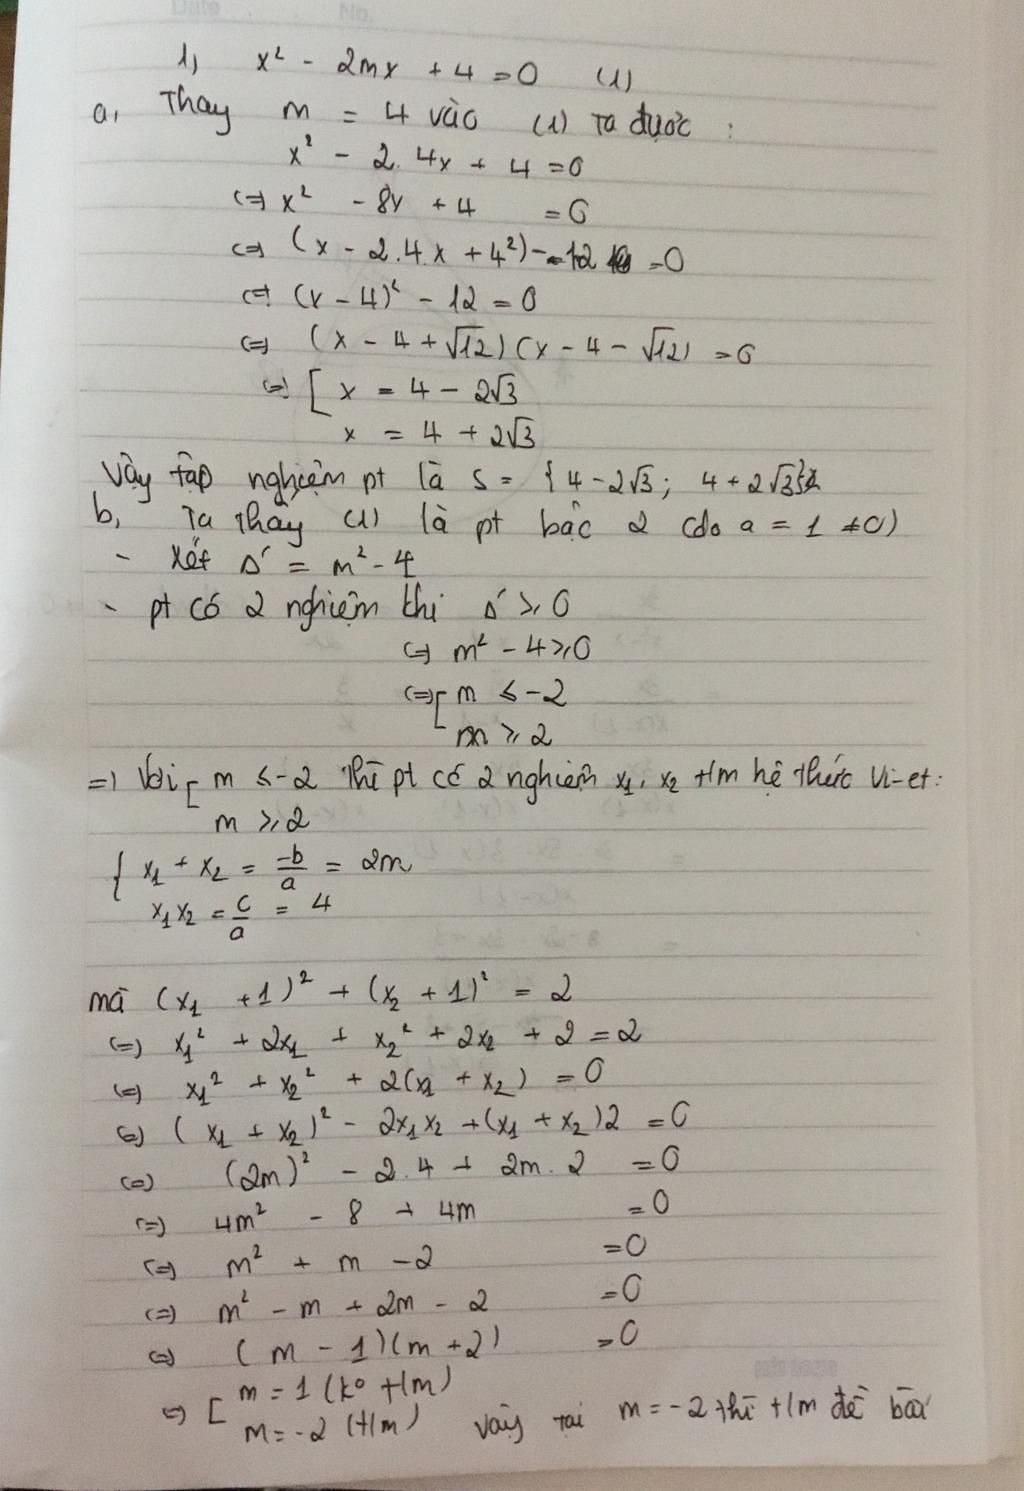 Date No.
1, x² - 2mx + 4 = 0 (1)
a, Thay m = 4 vào (1) Ta được :
x² - 2.4x + 4 = 0
<=> x² - 8x + 4 = 0
<=> (x - 2.4.x + 4²) - 12 = 0
<=> (x - 4)² - 12 = 0
<=> (x - 4 + √12)(x - 4 - √12) = 0
<=> [ x = 4 - 2√3
x = 4 + 2√3
Vậy tập nghiệm pt là S = {4 - 2√3; 4 + 2√3}
b, Ta thấy (1) là pt bậc 2 (do a = 1 ≠ 0)
- Xét Δ' = m² - 4
- pt có 2 nghiệm khi Δ' ≥ 0
<=> m² - 4 ≥ 0
<=> [ m ≤ -2
m ≥ 2
=> Với [ m ≤ -2 thì pt có 2 nghiệm x₁, x₂ t/m hệ thức Vi-et:
m ≥ 2
{ x₁ + x₂ = -b/a = 2m
x₁x₂ = c/a = 4
mà (x₁ + 1)² + (x₂ + 1)² = 2
<=> x₁² + 2x₁ + x₂² + 2x₂ + 2 = 2
<=> x₁² + x₂² + 2(x₁ + x₂) = 0
<=> (x₁ + x₂)² - 2x₁x₂ + (x₁ + x₂)2 = 0
<=> (2m)² - 2.4 + 2m.2 = 0
<=> 4m² - 8 + 4m = 0
<=> m² + m - 2 = 0
<=> m² - m + 2m - 2 = 0
<=> (m - 1)(m + 2) = 0
<=> [ m = 1 (ko t/m)
m = -2 (t/m) Vậy tại m = -2 thì t/m đề bài